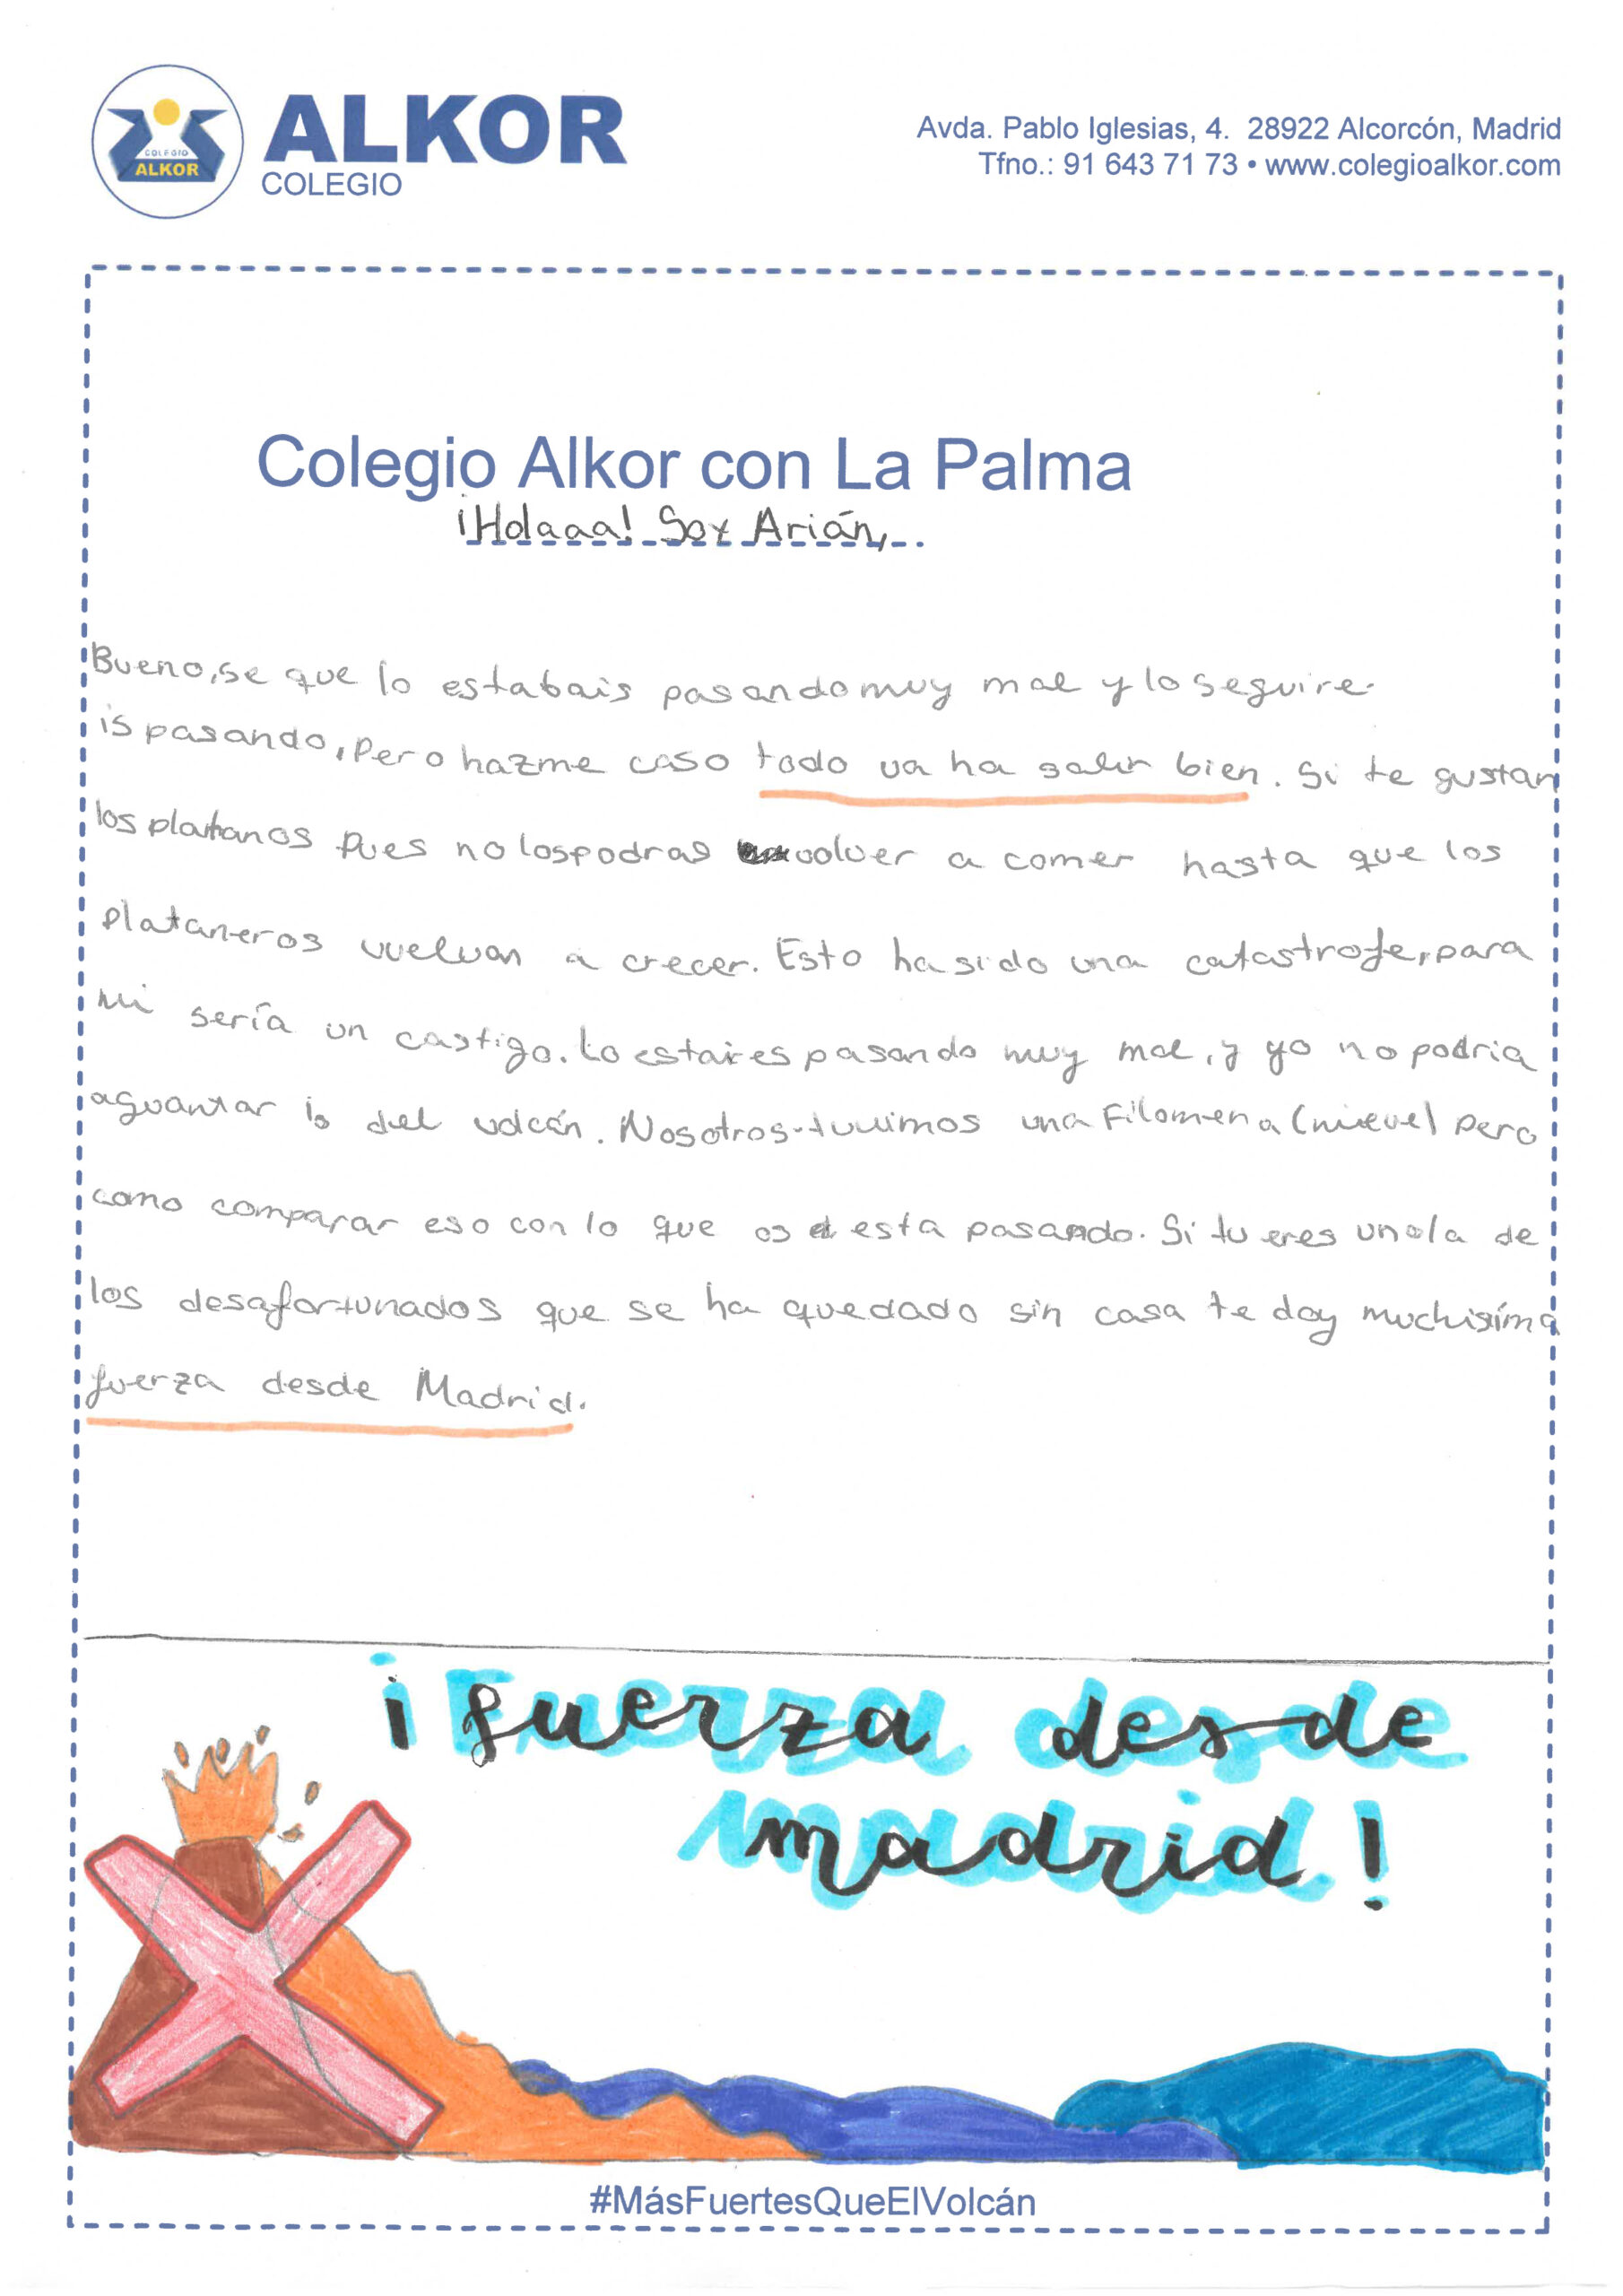 COLEGIO
ALKOR
ALKOR
COLEGIO
Avda. Pablo Iglesias, 4. 28922 Alcorcón, Madrid
Tfno.: 91 643 71 73 • www.colegioalkor.com
Colegio Alkor con La Palma
¡Holaaa! Soy Arián,
Bueno, se que lo estabais pasando muy mal y lo seguire-
is pasando, Pero hazme caso todo va ha salir bien. Si te gustan
los platanos Pues no los podras volver a comer hasta que los
Plataneros vuelvan a crecer. Esto ha sido una catastrofe, para
mi sería un castigo. Lo estareis pasando muy mal, y yo no podria
aguantar lo del volcán. Nosotros tuvimos una Filomena (nieve) pero
como comparar eso con lo que os esta pasando. Si tu eres uno/a de
los desafortunados que se ha quedado sin casa te doy muchisíma
fuerza desde Madrid.
¡fuerza desde
madrid!
#MásFuertesQueElVolcán